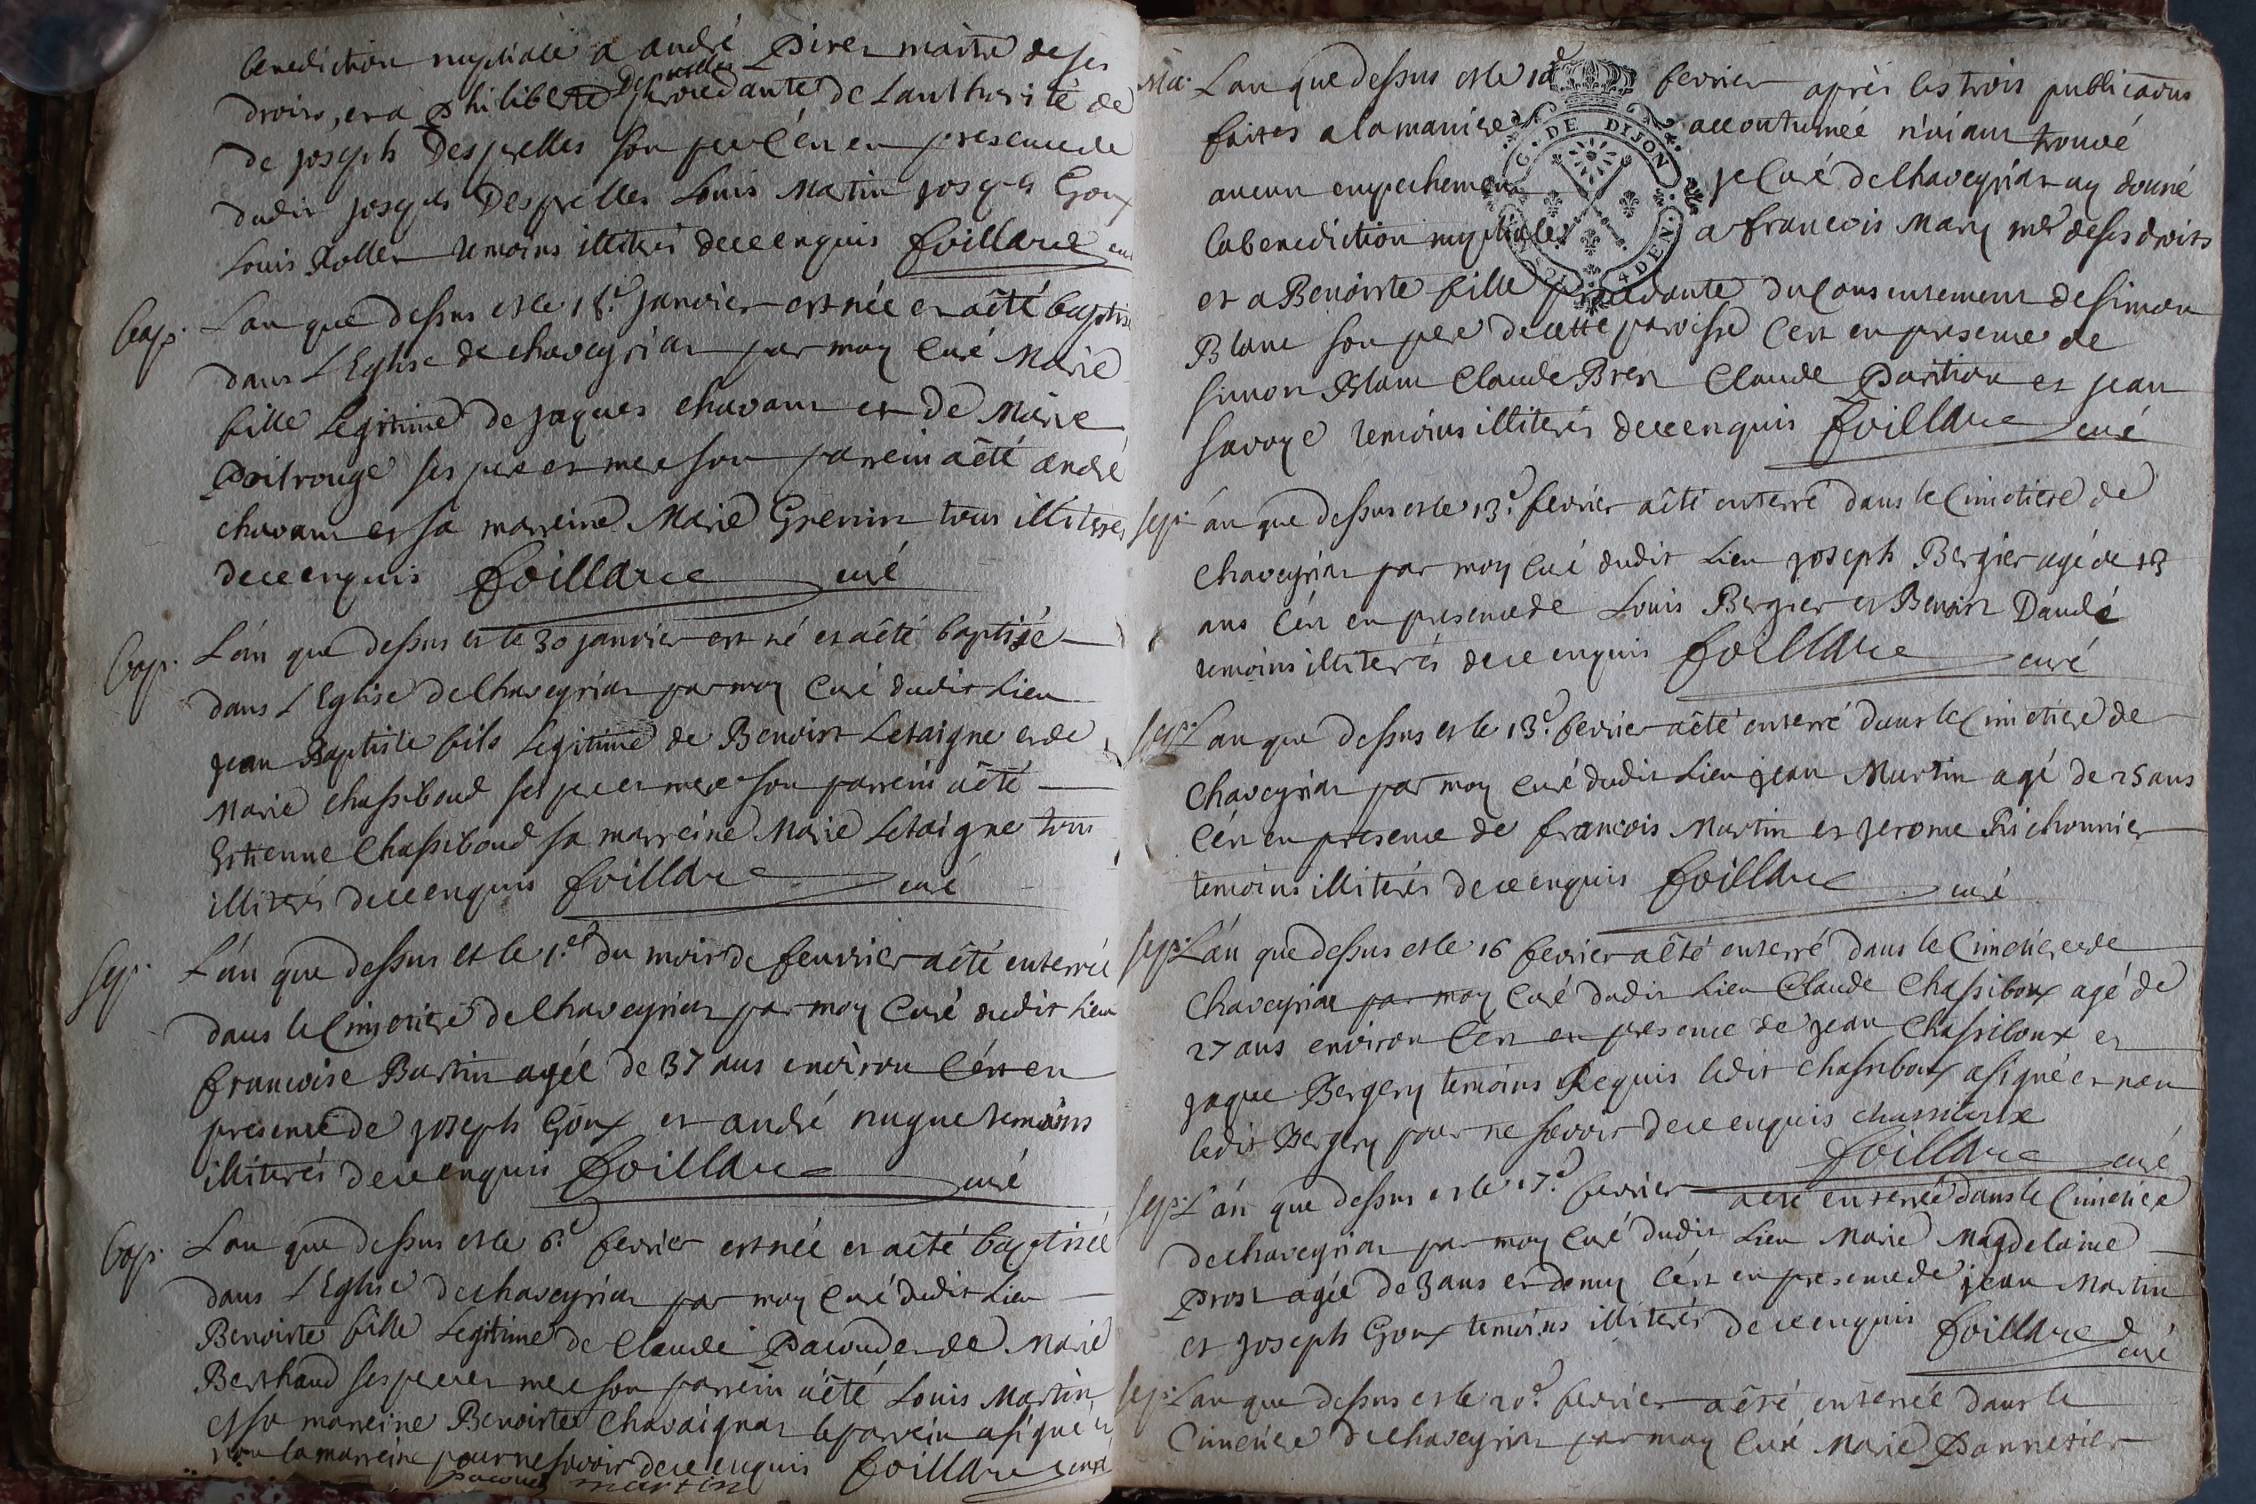 benediction nuptiale a andré Pirer maitre de ses
droits, et a Philiberte Desprelles procedante de Lauthorité de
de joseph Desprelles son pere C'en en presence de
dudit joseph Desprelles Louis Martin joseph Goux
Louis Rollet temoins illiterés de ce enquis foillard curé
bap. L'an que dessus et le 18.e janvier est née et a été baptisée
dans L'Eglise de chaveyriat par moy Curé Marie
fille Legitime de jaques chavant et de Marie
Poitrouge ses pere et mere son parrein a été andré
chavant et sa marreine Marie Grenin tous illiterés
de ce enquis foillard curé
bap. L'an que dessus et le 30 janvier est né et a été baptisé
dans L'Eglise de Chaveyriat par moy Curé dudit Lieu
jean Baptiste fils Legitime de Benoist Letaigne et de
Marie chassiboud ses pere et mere son parrein a été
Estienne Chassiboud sa marreine Marie Letaigne tous
illiterés de ce enquis foillard curé
sep. L'an que dessus et le 1.er du mois de feuvrier a été enterrée
dans le Cimetiere de Chaveyriat par moy Curé dudit Lieu
francoise Burtin agée de 37 ans environ C'est en
presence de joseph Goux et andré nugue temoins
illiterés de ce enquis foillard curé
bap. L'an que dessus et le 6.e fevrier est née et a été baptisée
dans L'Eglise de chaveyriat par moy Curé dudit Lieu
Benoiste fille Legitime de Claude Pacoud et de Marie
Berthaud ses pere et mere son parrein a été Louis Martin
et sa marreine Benoiste Chavaignat le parrein a signé et
non la marreine pour ne savoir de ce enquis foillard curé
pacoud martin
Ma. L'an que dessus et le 1d fevrier après les trois publications
faites a la maniere accoutumée n'aiant trouvé
aucun empechement je Curé de Chaveyriat ay donné
la benediction nuptiale a francois Mary me de ses droits
G. DE DIJON
4 DEN.
et a Benoiste fille procedante du Consentement de Simon
Blanc son pere de cette paroisse C'est en presence de
Simon Blanc Claude Bren Claude Paritiou et jean
Savoye temoins illiterés de ce enquis foillard curé
sep. L'an que dessus et le 13.e fevrier a été enterré dans le Cimetiere de
Chaveyriat par moy Curé dudit Lieu joseph Bergier agé de 13
ans C'est en presence de Louis Bergier et Benoist Daudé
temoins illiterés de ce enquis foillard curé
sep. L'an que dessus et le 13.e fevrier a été enterré dans le Cimetiere de
Chaveyriat par moy Curé dudit Lieu jean Martin agé de 25 ans
C'est en presence de francois Martin et jerome Richonnier
temoins illiterés de ce enquis foillard curé
sep. L'an que dessus et le 16 fevrier a été enterré dans le Cimetiere de
Chaveyriat par moy Curé dudit Lieu Claude Chassiboux agé de
27 ans environ C'est en presence de jean Chassiboux et
jaque Bergery temoins Requis ledit chassiboux a signé et non
ledit Bergery pour ne savoir de ce enquis chassiboux
foillard curé
sep. L'an que dessus et le 17.e fevrier a été enterrée dans le Cimetiere
de chaveyriat par moy Curé dudit Lieu Marie Magdelaine
Prost agée de 3 ans et demy C'est en presence de jean Martin
et joseph Goux temoins illiterés de ce enquis foillard curé
sep. L'an que dessus et le 20.e fevrier a été enterrée dans le
Cimetiere de chaveyriat par moy Curé Marie Pannetier